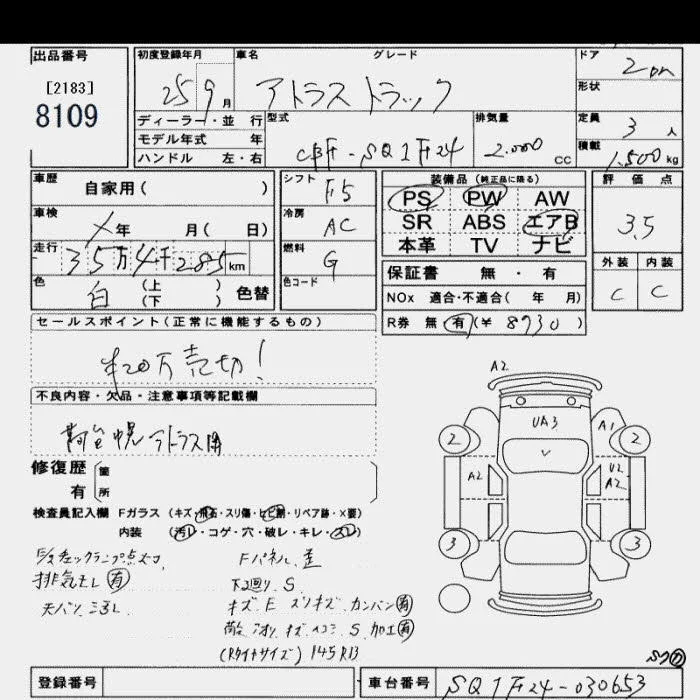 出品番号
[2183]
8109
初度登録年月 25 9月
車名 アトラストラック
グレード
ドア 2
形状
ディーラー・並 行
モデル年式 年
ハンドル 左・右
型式 CBF-SQ1F24
排気量 2.000 CC
定員 3 人
積載 1,500 kg
車歴 自家用( )
車検 ×年 月( 日)
走行 35万4千285km
色 白 (上)(下) 色替
シフト F5
冷房 AC
燃料 G
色コード
装備品(純正品に限る)
PS PW AW
SR ABS エアB
本革 TV ナビ
保証書 無・有
NOx 適合・不適合( 年 月)
R券 無 有(¥ 8930 )
評価点
3.5
外装 内装
C C
セールスポイント(正常に機能するもの)
¥20万売切!
不良内容・欠品・注意事項等記載欄
荷台幌
修復歴 箇所
有
検査員記入欄 Fガラス(キズ・飛石・スリ傷・ヒビ割・リペア跡・×要)
内装(汚レ・コゲ・穴・破レ・キレ・スレ)
チェックランプ点
排気モレ 有
Fパネル歪
下廻り S
キズ E スリキズ カンバン有
S 加工有
145R13
A2
UA3
A1
2
2
A2
U2
A2
3
3
登録番号
車台番号 SQ1F24-030653